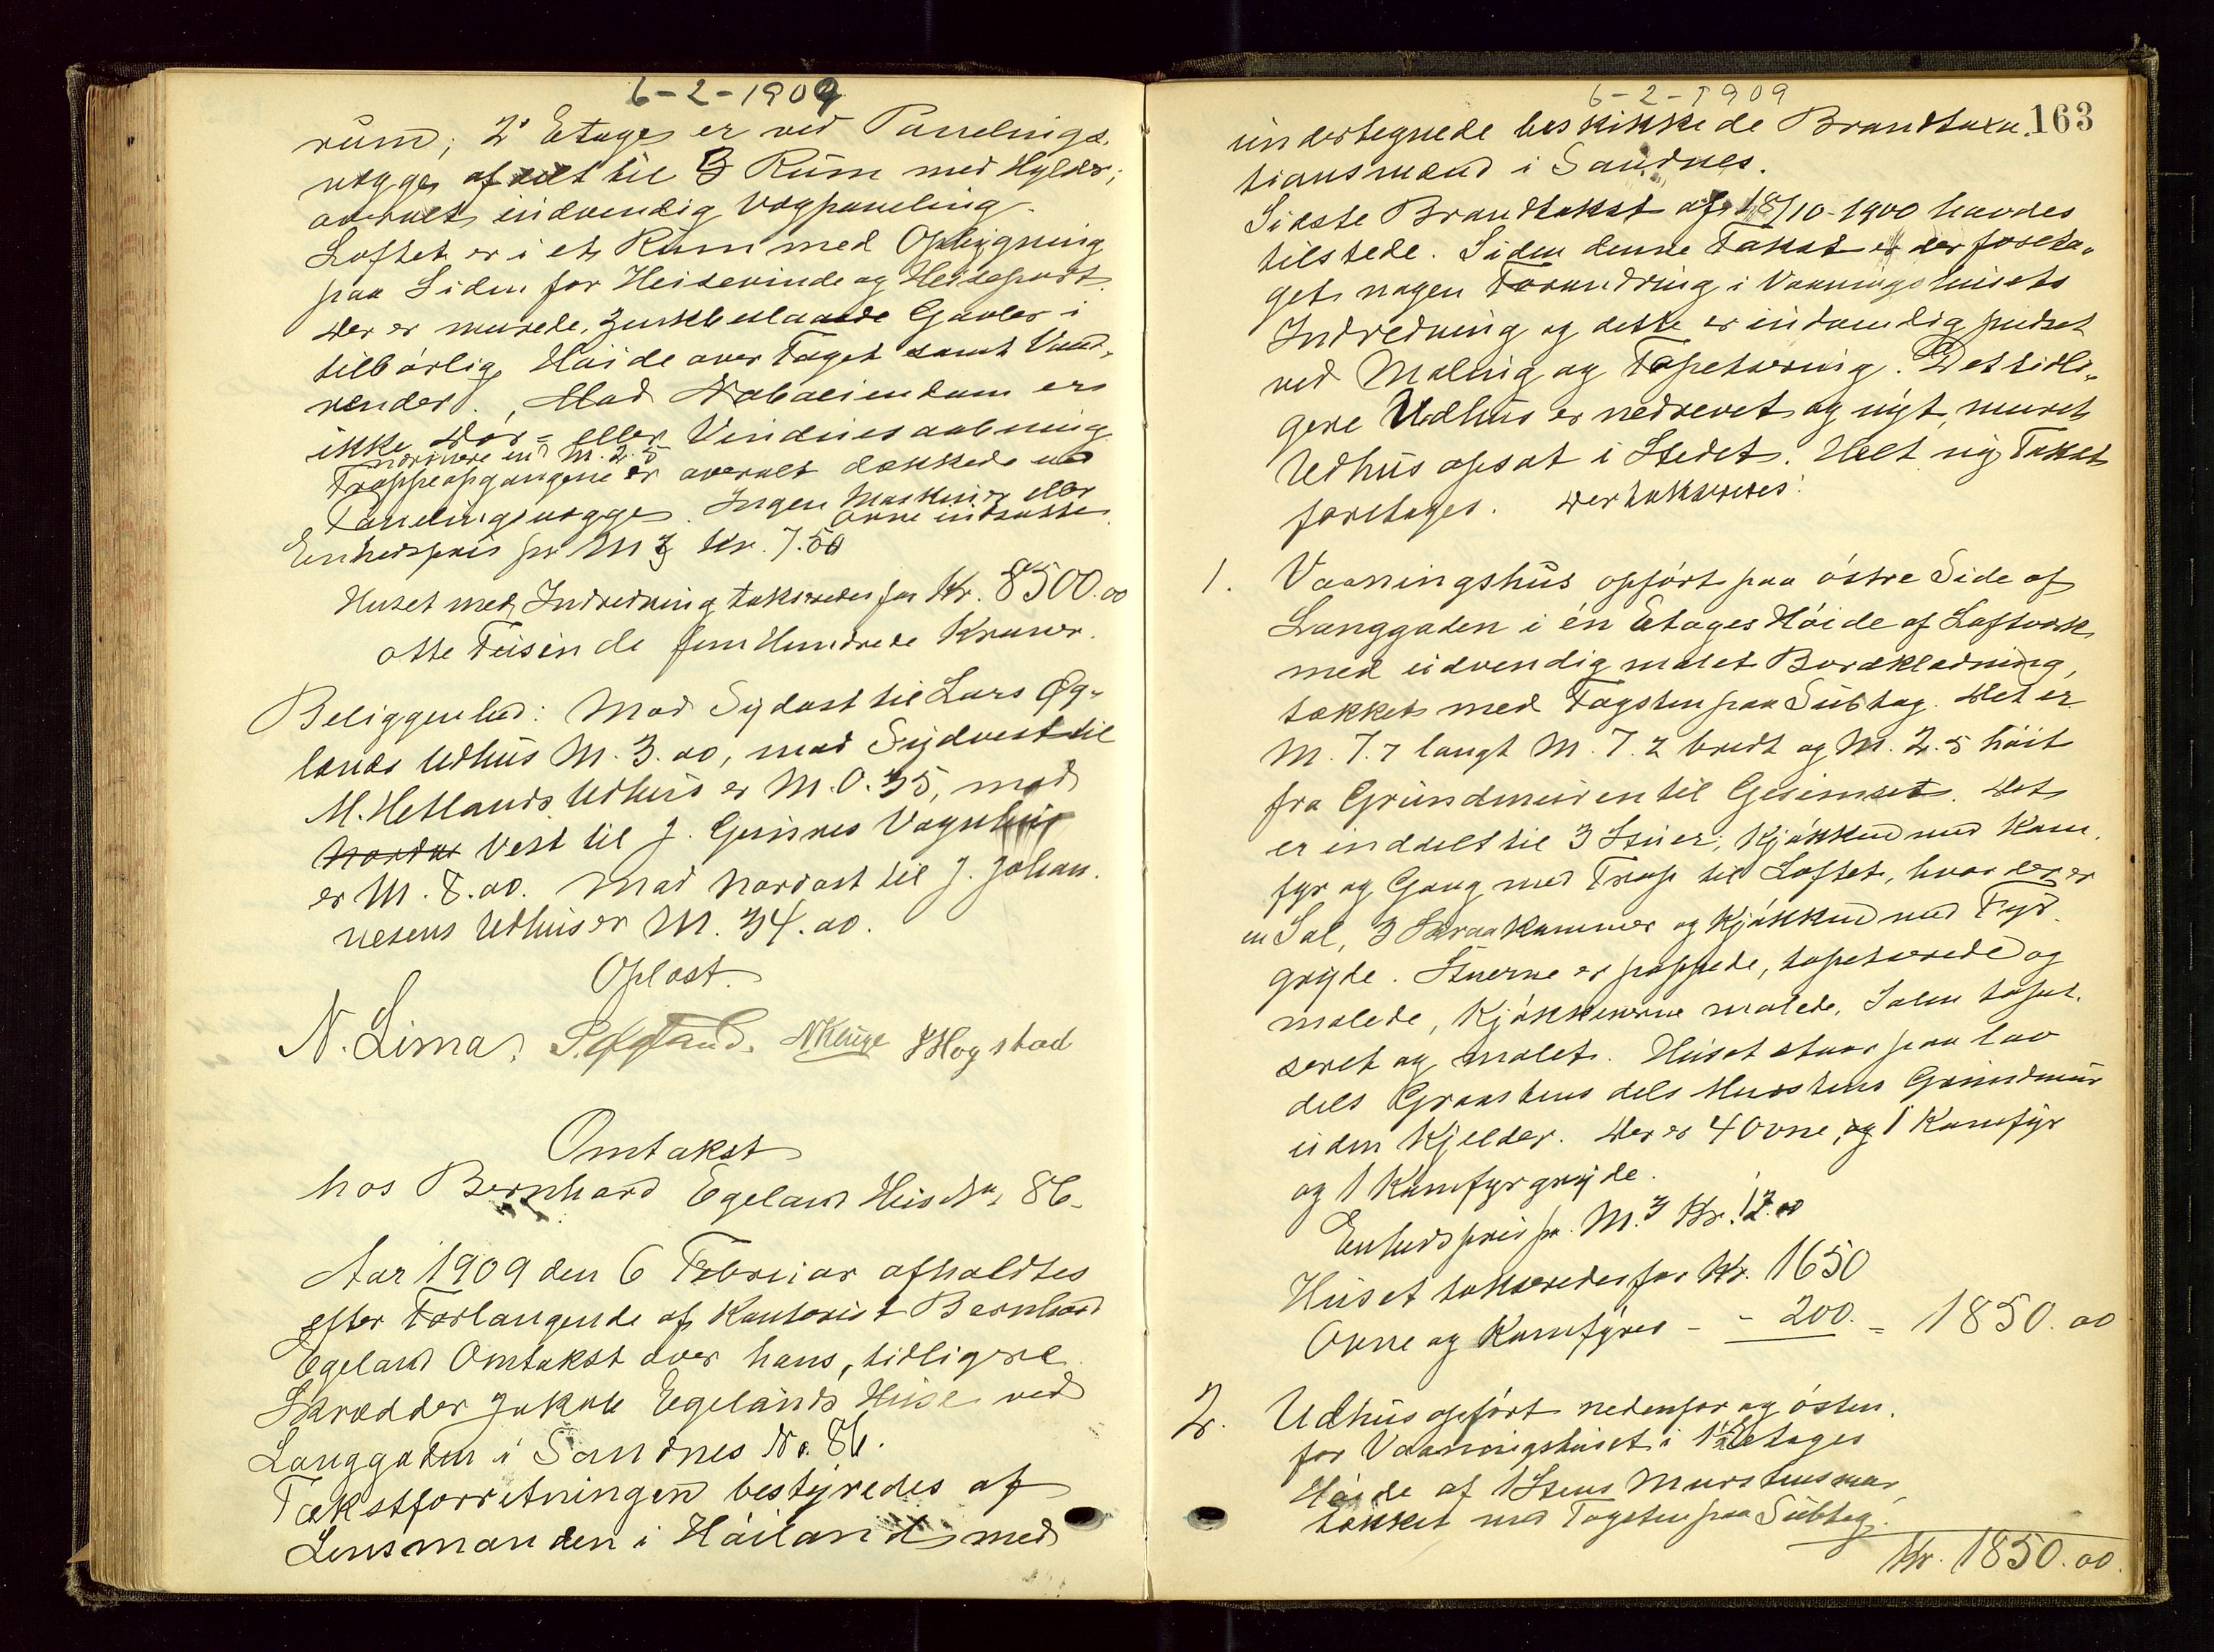 6-2-1909
rum; 2' Etage er ved Panelings-
vægge afdelt til 3 Rum med Hylder;
overalt indvendig Vægpaneling.
Loftet er i et Rum med Opbygning
paa Siden for Heisevinde og Heiseport.
Der er murede, zinkbeslaaede Gavler i
tilbörlig Höide over Taget samt Vand-
render. Mod Naboeiendom er
ikke Dör- eller Vinduesaabning
nærmere end M. 2.5
Trappeopgangene er overalt dækkede med
Panelingsvægge. Ingen Maskiner eller
Ovne indsatte.
Enhedspris pr M3 Kr. 7.50
Huset med Indredning takseredes for Kr. 8500.00
otte Tusinde fem Hundrede Kroner.
Beliggenhed: Mod Sydost til Lars Øg-
lænds Udhus M. 3.00, mod Sydvest til
M. Hetlands Udhus er M. 0.35, mod
Nordve Vest til J. Gjesnes Vognhus
er M. 8.00. Mod Nordost til J. Johan-
nesens Udhus er M. 34.00.
Oplæst.
N. Lima, N Kluge Hogstad
Omtakst
hos Bernhard Egeland Hus No 86.
Aar 1909 den 6 Februar afholdtes
efter Forlangende af Kontorist Bernhard
Egeland Omtakst over hans, tidligere
Skrædder Jakob Egelands Huse ved
Langgaden i Sandnes No. 86.
Takstforretningen bestyredes af
Lensmanden i Höiland med
6-2-1909
163
undertegnede beskikkede Brandtaxa-
tionsmænd i Sandnes.
Sidste Brandtakst af 18/10-1900 havdes
tilstede. Siden denne Takst er der foreta-
get nogen Forandring i Vaaningshusets
Indredning og dette er indvendig pudset
ved Maling og Tapetsering. Det tidli-
gere Udhus er nedrevet og nyt, muret
Udhus opsat i Stedet. Helt ny Takst
foretages. Der takseredes:
1. Vaaningshus opfört paa östre Side af
Langgaden i én Etages Höide af Loftværk
med udvendig malet Bordklædning,
tækket med Tagsten paa Sutag. Det er
M. 7.7 langt M. 7.2 bredt og M. 2.5 höit
fra Grundmuren til Gesimset. Det
er inddelt til 3 Stuer, Kjökken med Kom-
fyr og Gang med Trap til Loftet, hvor der er
en Sal, 3 Skraakammer og Kjökken med Fyr-
gryde. Stuerne er pappede, tapetserede og
malede, Kjökkenerne malede, Salen tapet-
seret og malet. Huset staar paa lav
dels Graastens dels Murstens Grundmur
uden Kjelder. Der er 4 Ovne, og 1 Komfyr
og 1 Komfyrgryde.
Enhedspris pr. M.3 Kr. 12.00
Huset takseredes for Kr. 1650
Ovne og Komfyrer - - 200. = 1850.00
2. Udhus opfört nedenfor og östen-
for Vaaningshuset i 1½ Etages
Höide af 1 Stens Murstensmur,
tækket med Tagsten paa Sutag.
Kr. 1850.00.